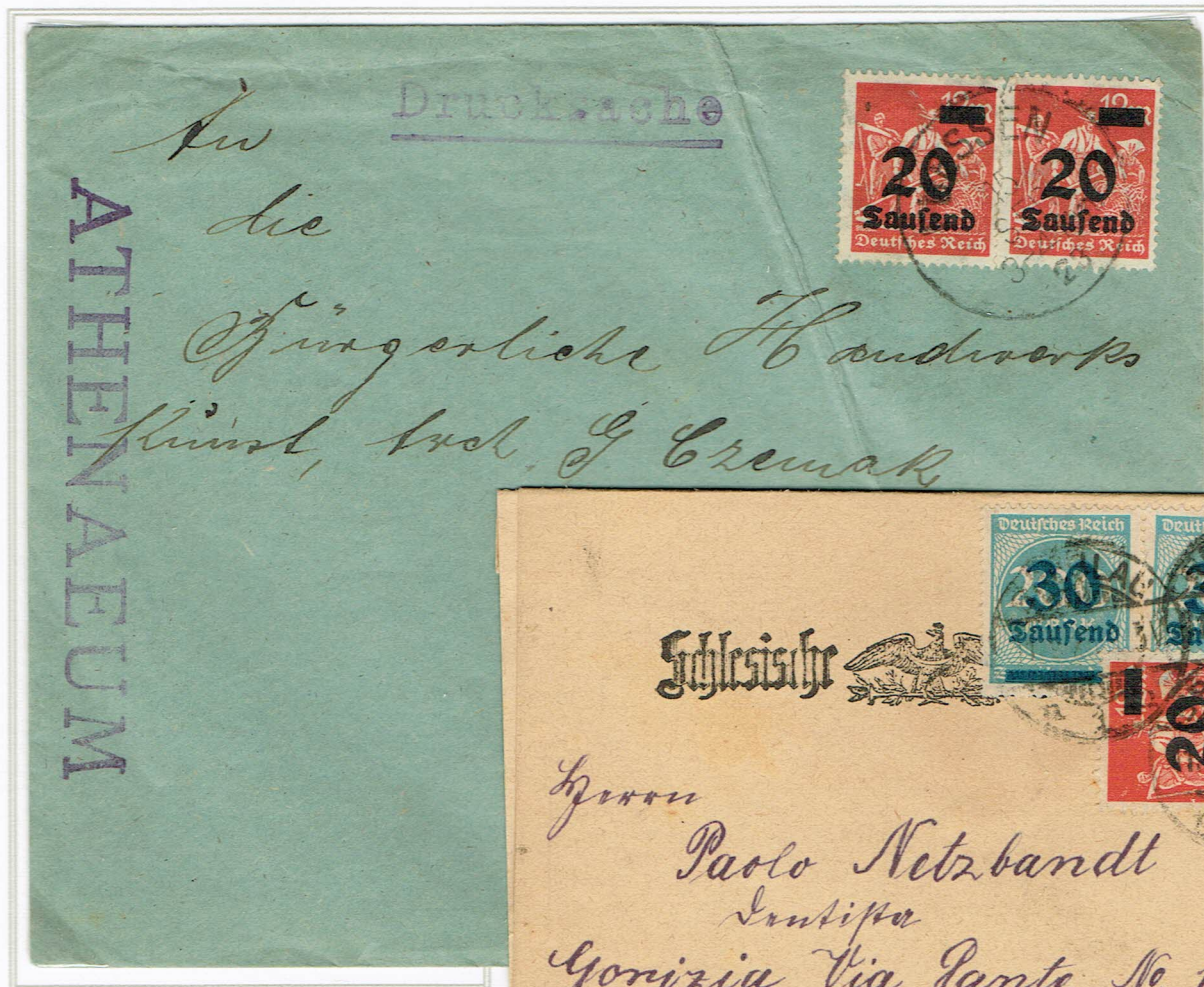 Drucksache
An
die
Bürgerliche Handwerks
Kunst, Arch. G Czermak
ATHENAEUM
12
20
Tausend
Deutsches Reich
12
20
Tausend
Deutsches Reich
SSEN
23
Deutsches Reich
30
Tausend
LAU
20
Schlesische
Herrn
Paolo Netzbandt
Dentista
Gorizia Via Dante No